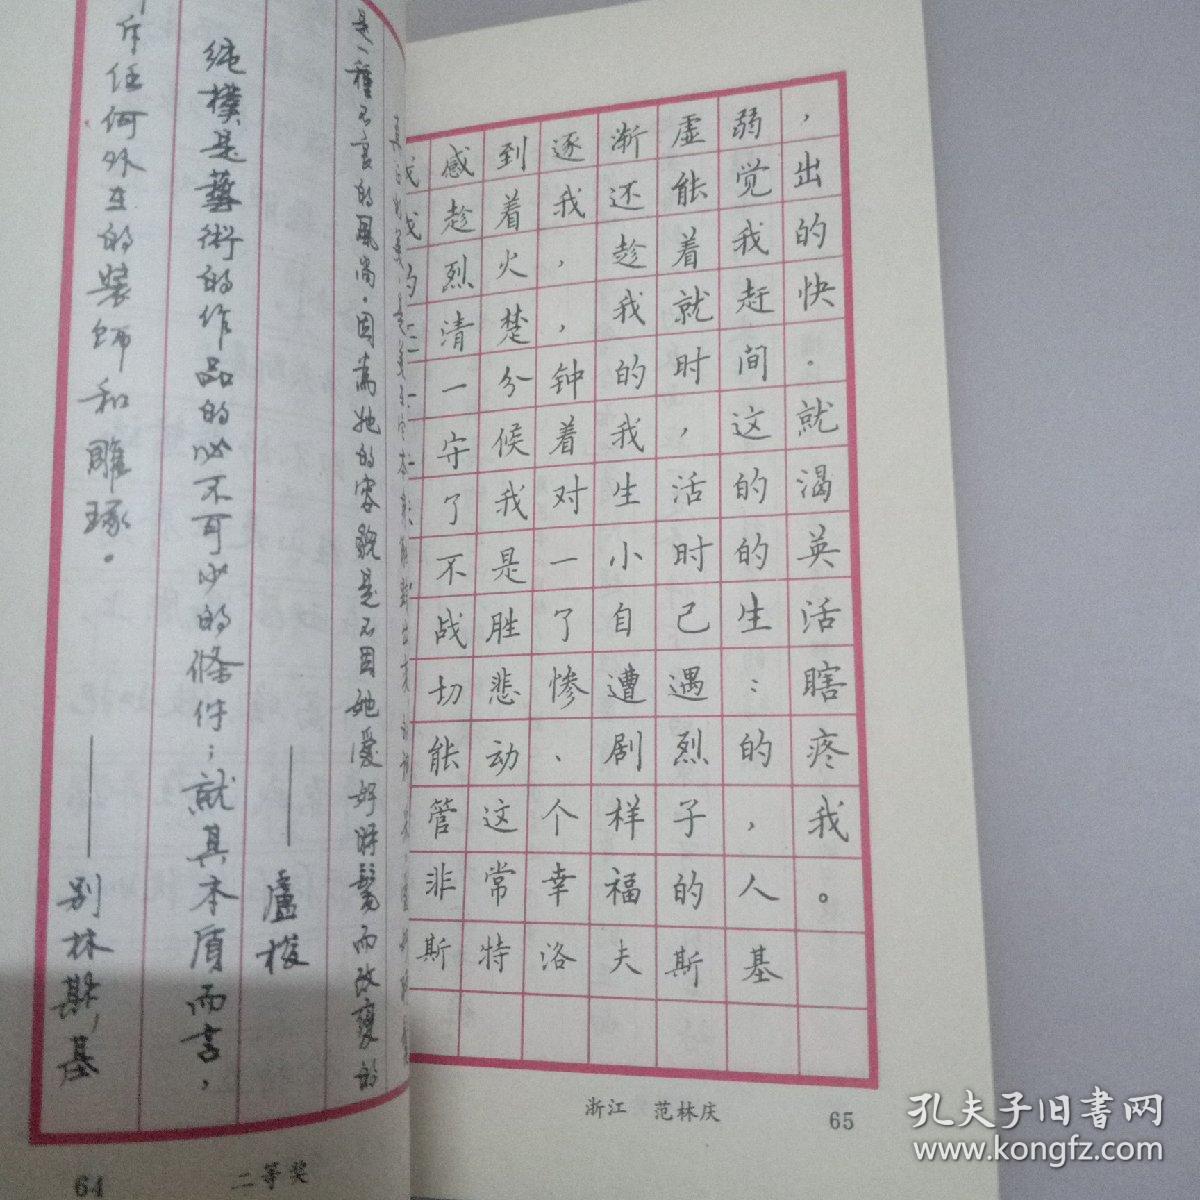 是一種不良的風尚，因為她的容貌是不因她愛好時髦而改變的
——盧梭
純樸是藝術的作品的必不可少的條件；就其本質而言，
斥任何外在的裝飾和雕琢。
——别林斯基
64
二等奖
感到逐渐虚弱，
趁着我还能觉出
烈火，趁着我的
清楚，我就赶快
一分钟的时间.
守候着我，这就
了我对生活的渴
不是一小时的英
战胜了自己生活
切悲惨遭遇：瞎
能动、剧烈的疼
管这个样子，我
非常幸福的人。
斯特洛夫斯基
浙江 范林庆
65
孔夫子旧书网
www.kongfz.com